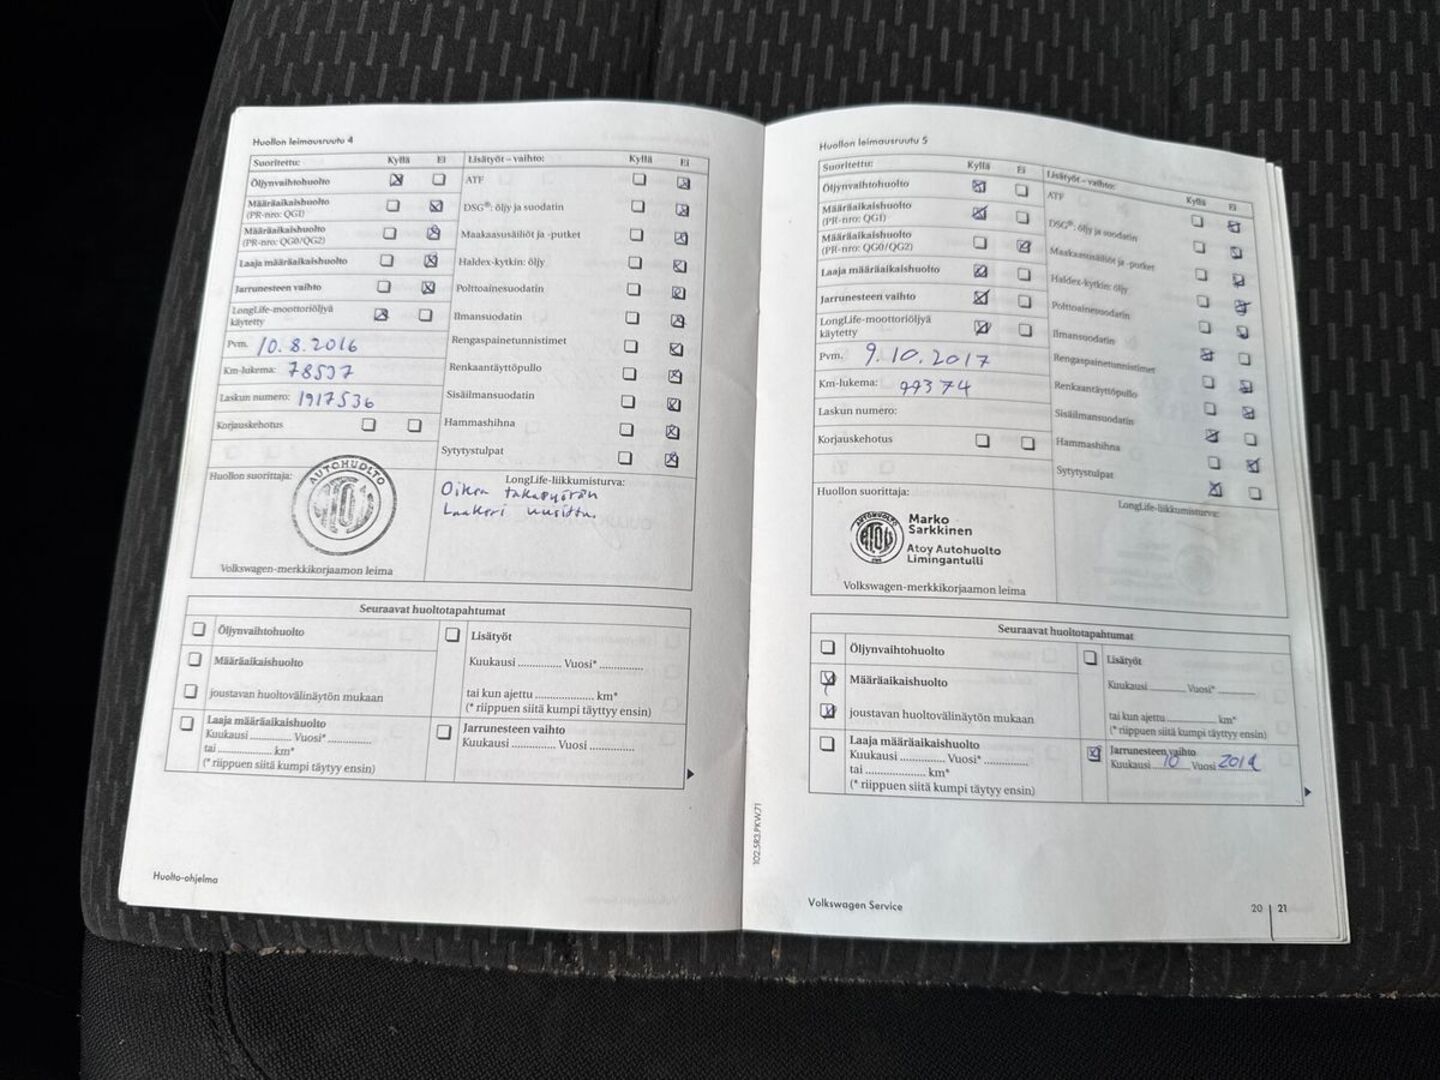 Huollon leimausruutu 4
Suoritettu: Kyllä Ei
Öljynvaihtohuolto
Määräaikaishuolto
(PR-nro: QG1)
Määräaikaishuolto
(PR-nro: QG0/QG2)
Laaja määräaikaishuolto
Jarrunesteen vaihto
LongLife-moottoriöljyä
käytetty
Pvm. 10.8.2016
Km-lukema: 78537
Laskun numero: 1917536
Korjauskehotus
Lisätyöt – vaihto: Kyllä Ei
ATF
DSG®: öljy ja suodatin
Maakaasusäiliöt ja -putket
Haldex-kytkin: öljy
Polttoainesuodatin
Ilmansuodatin
Rengaspainetunnistimet
Renkaantäyttöpullo
Sisäilmansuodatin
Hammashihna
Sytytystulpat
Huollon suorittaja:
AUTOHUOLTO
Volkswagen-merkkikorjaamon leima
LongLife-liikkumisturva:
Oikea takapyörän
Laakeri uusittu.
Seuraavat huoltotapahtumat
Öljynvaihtohuolto
Määräaikaishuolto
joustavan huoltovälinäytön mukaan
Laaja määräaikaishuolto
Kuukausi ............. Vuosi* .............
tai ................ km*
(* riippuen siitä kumpi täytyy ensin)
Lisätyöt
Kuukausi ............. Vuosi* .............
tai kun ajettu .................. km*
(* riippuen siitä kumpi täyttyy ensin)
Jarrunesteen vaihto
Kuukausi ............. Vuosi .............
Huolto-ohjelma
Huollon leimausruutu 5
Suoritettu: Kyllä Ei
Öljynvaihtohuolto
Määräaikaishuolto
(PR-nro: QG1)
Määräaikaishuolto
(PR-nro: QG0/QG2)
Laaja määräaikaishuolto
Jarrunesteen vaihto
LongLife-moottoriöljyä
käytetty
Pvm. 9.10.2017
Km-lukema: 99374
Laskun numero:
Korjauskehotus
Lisätyöt – vaihto: Kyllä Ei
ATF
DSG®: öljy ja suodatin
Maakaasusäiliöt ja -putket
Haldex-kytkin: öljy
Polttoainesuodatin
Ilmansuodatin
Rengaspainetunnistimet
Renkaantäyttöpullo
Sisäilmansuodatin
Hammashihna
Sytytystulpat
Huollon suorittaja:
AUTOHUOLTO
ATOY
Marko
Sarkkinen
Atoy Autohuolto
Limingantulli
Volkswagen-merkkikorjaamon leima
LongLife-liikkumisturva:
Seuraavat huoltotapahtumat
Öljynvaihtohuolto
Määräaikaishuolto
joustavan huoltovälinäytön mukaan
Laaja määräaikaishuolto
Kuukausi ............. Vuosi* .............
tai ................ km*
(* riippuen siitä kumpi täytyy ensin)
Lisätyöt
Kuukausi ............. Vuosi* .............
tai kun ajettu .................. km*
(* riippuen siitä kumpi täyttyy ensin)
Jarrunesteen vaihto
Kuukausi 10 Vuosi
102.5R3.PKW.71
Volkswagen Service
20 | 21